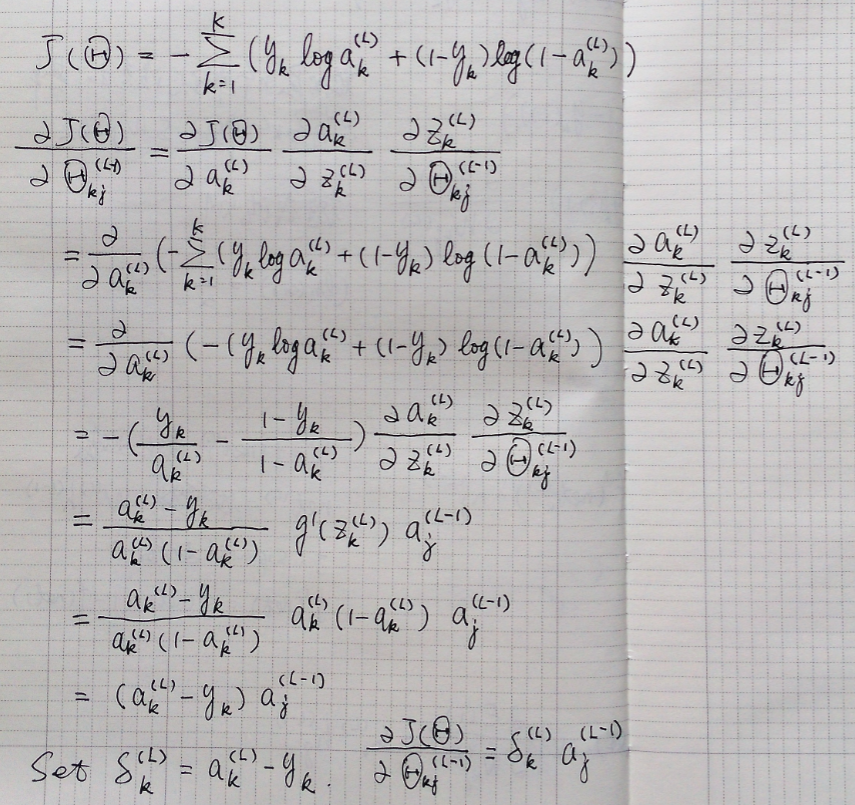 J(Θ) = -∑_{k=1}^{K} (y_k log a_k^{(L)} + (1-y_k) log(1-a_k^{(L)}))
∂J(Θ)/∂Θ_{kj}^{(L-1)} = ∂J(Θ)/∂a_k^{(L)} ∂a_k^{(L)}/∂z_k^{(L)} ∂z_k^{(L)}/∂Θ_{kj}^{(L-1)}
= ∂/∂a_k^{(L)} (-∑_{k=1}^{K} (y_k log a_k^{(L)} + (1-y_k) log(1-a_k^{(L)})) ∂a_k^{(L)}/∂z_k^{(L)} ∂z_k^{(L)}/∂Θ_{kj}^{(L-1)}
= ∂/∂a_k^{(L)} (-(y_k log a_k^{(L)} + (1-y_k) log(1-a_k^{(L)})) ∂a_k^{(L)}/∂z_k^{(L)} ∂z_k^{(L)}/∂Θ_{kj}^{(L-1)}
= -(y_k/a_k^{(L)} - (1-y_k)/(1-a_k^{(L)})) ∂a_k^{(L)}/∂z_k^{(L)} ∂z_k^{(L)}/∂Θ_{kj}^{(L-1)}
= (a_k^{(L)}-y_k)/(a_k^{(L)}(1-a_k^{(L)})) g'(z_k^{(L)}) a_j^{(L-1)}
= (a_k^{(L)}-y_k)/(a_k^{(L)}(1-a_k^{(L)})) a_k^{(L)}(1-a_k^{(L)}) a_j^{(L-1)}
= (a_k^{(L)}-y_k) a_j^{(L-1)}
Set δ_k^{(L)} = a_k^{(L)}-y_k. ∂J(Θ)/∂Θ_{kj}^{(L-1)} = δ_k^{(L)} a_j^{(L-1)}